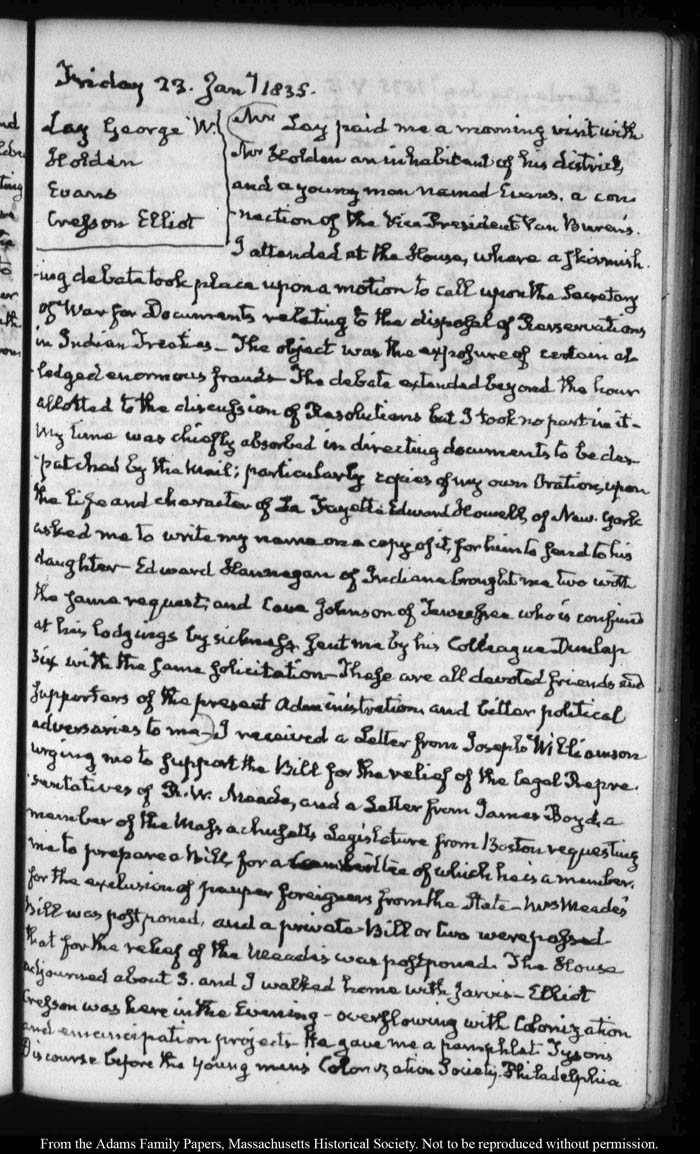 Friday 23. Jany 1835.
Lay George W.
Holden
Evans
Cresson Elliot
Mr Lay paid me a morning visit with
Mr Holden an inhabitant of his district,
and a young man named Evans, a con
-nection of the Vice-President Van Buren's.
I attended at the House, where a skirmish-
-ing debate took place upon a motion to call upon the Secretary
of War for Documents relating to the disposal of Reservations
in Indian Treaties – The object was the exposure of certain al-
-ledged enormous frauds – The debate extended beyond the hour
allotted to the discussion of Resolutions but I took no part in it –
My time was chiefly absorbed in directing documents to be des-
-patched by the Mail; particularly copies of my own Oration, upon
the life and character of La Fayette Edward Howell, of New-York
asked me to write my name on a copy of it, for him to send to his
daughter – Edward Hannegan of Indiana brought me two with
the same request; and Cave Johnson of Tennessee who is confined
at his lodgings by sickness, sent me by his Colleague Dunlap
six with the same solicitation – These are all devoted friends and
supporters of the present Administration, and bitter political
adversaries to me – I received a Letter from Joseph Williamson
urging me to support the Bill for the relief of the legal Repre-
-sentatives of R. W. Meade, and a Letter from James Boyd, a
member of the Massachusetts Legislature from Boston requesting
me to prepare a Bill, for a Committee of which he is a member,
for the exclusion of pauper foreigners from the State – Mrs Meade's
Bill was postponed, and a private Bill or two were passed.
that for the relief of the Meades was postponed. The House
adjourned about 3. and I walked home with Jarvis – Elliot
Cresson was here in the Evening – overflowing with Colonization
and emancipation projects – He gave me a pamphlet Tysons
Discourse before the young men's Colonization Society. Philadelphia
From the Adams Family Papers, Massachusetts Historical Society. Not to be reproduced without permission.